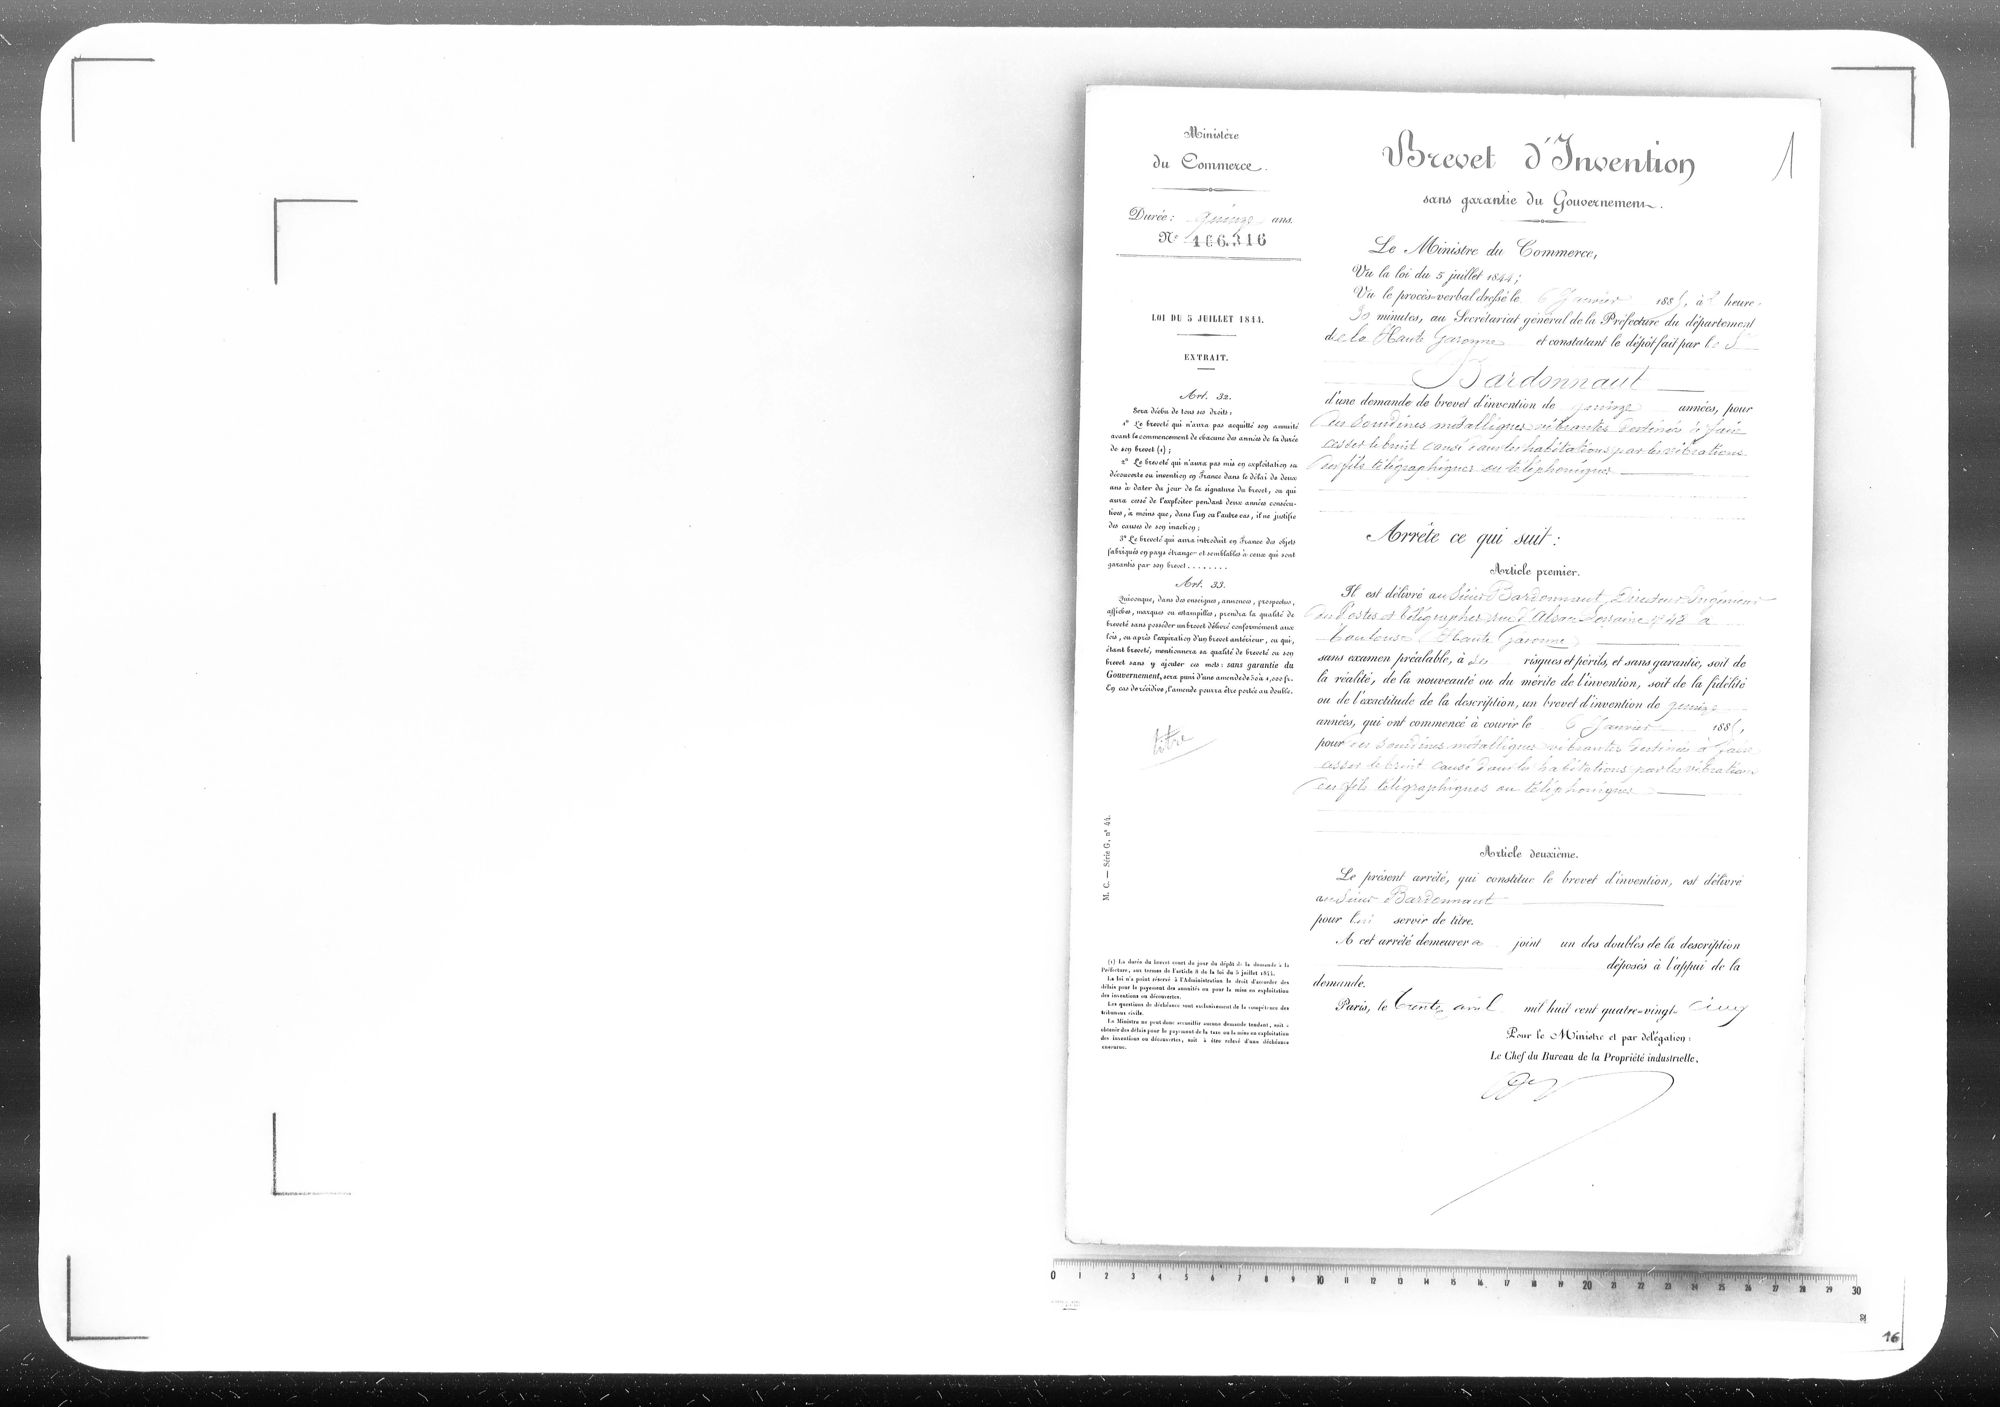 Ministère
du Commerce.
Durée : quinze ans.
N° 166.316
LOI DU 5 JUILLET 1844.
EXTRAIT.
Art. 32.
Sera déchu de tous ses droits :
1° Le breveté qui n'aura pas acquitté son annuité
avant le commencement de chacune des années de la durée
de son brevet (1) ;
2° Le breveté qui n'aura pas mis en exploitation sa
découverte ou invention en France dans le délai de deux
ans à dater du jour de la signature du brevet, ou qui
aura cessé de l'exploiter pendant deux années consécu-
tives, à moins que, dans l'un ou l'autre cas, il ne justifie
des causes de son inaction ;
3° Le breveté qui aura introduit en France des objets
fabriqués en pays étranger et semblables à ceux qui sont
garantis par son brevet . . . . . . . .
Art. 33.
Quiconque, dans des enseignes, annonces, prospectus,
affiches, marques ou estampilles, prendra la qualité de
breveté sans posséder un brevet délivré conformément aux
lois, ou après l'expiration d'un brevet antérieur, ou qui,
étant breveté, mentionnera sa qualité de breveté ou son
brevet sans y ajouter ces mots : sans garantie du
Gouvernement, sera puni d'une amende de 50 à 1,000 fr.
En cas de récidive, l'amende pourra être portée au double.
titre
M. C. — Série G, n° 44.
(1) La durée du brevet court du jour du dépôt de la demande à la
Préfecture, aux termes de l'article 8 de la loi du 5 juillet 1844.
La loi n'a point réservé à l'Administration le droit d'accorder des
délais pour le payement des annuités ou pour la mise en exploitation
des inventions ou découvertes.
Les questions de déchéance sont exclusivement de la compétence des
tribunaux civils.
Le Ministre ne peut donc accueillir aucune demande tendant, soit à
obtenir des délais pour le payement de la taxe ou la mise en exploitation
des inventions ou découvertes, soit à être relevé d'une déchéance
encourue.
1
Brevet d'Invention
sans garantie du Gouvernement.
Le Ministre du Commerce,
Vu la loi du 5 juillet 1844 ;
Vu le procès-verbal dressé le 6 Janvier 1885, à 2 heure
30 minutes, au Secrétariat général de la Préfecture du département
de la Haute Garonne et constatant le dépôt fait par le Sr
Bardonnaut
d'une demande de brevet d'invention de quinze années, pour
des sourdines métalliques vibrantes destinées à faire
cesser le bruit causé dans les habitations par les vibrations
des fils télégraphiques ou téléphoniques
Arrête ce qui suit :
Article premier.
Il est délivré au Sieur Bardonnaut, Directeur Ingénieur
des Postes et Télégraphes, rue d'Alsace Lorraine n° 42 à
Toulouse (Haute Garonne)
sans examen préalable, à ses risques et périls, et sans garantie, soit de
la réalité, de la nouveauté ou du mérite de l'invention, soit de la fidélité
ou de l'exactitude de la description, un brevet d'invention de quinze
années, qui ont commencé à courir le 6 Janvier 1885,
pour des sourdines métalliques vibrantes destinées à faire
cesser le bruit causé dans les habitations par les vibrations
des fils télégraphiques ou téléphoniques
Article deuxième.
Le présent arrêté, qui constitue le brevet d'invention, est délivré
au Sieur Bardonnaut
pour lui servir de titre.
A cet arrêté demeurera joint un des doubles de la description
déposés à l'appui de la
demande.
Paris, le trente avril mil huit cent quatre-vingt-cinq
Pour le Ministre et par délégation :
Le Chef du Bureau de la Propriété industrielle,
0 1 2 3 4 5 6 7 8 9 10 11 12 13 14 15 16 17 18 19 20 21 22 23 24 25 26 27 28 29 30
16